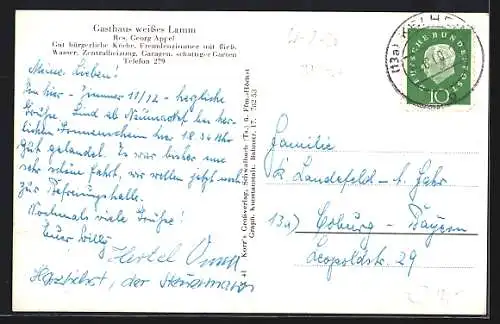 Gasthaus weißes Lamm
Bes. Georg Appel
Gut bürgerliche Küche, Fremdenzimmer mit fließ.
Wasser, Zentralheizung, Garagen, schattiger Garten
Telefon 279
Meine Lieben!
Von hier - Zimmer 11/12 - herzliche
Grüße. Sind ab Neumarkt bei herr-
lichem Sonnenschein hier 18.30 Uhr
gut gelandet. Es war bisher eine
sehr schöne Fahrt, wir wollen jetzt noch
zur Befreiungshalle.
Nochmals viele Grüße!
Euer Willy
Hertel
Herzlichst, der Steuermann
Korr's Großverlag, Schwalbach (Ts.) u. Ffm.-Höchst
Graph. Kunstanstalt, Bahnstr. 17. 762 53
41
(13a)
DEUTSCHE BUNDESPOST
10
Familie
Landefeld - Jahr
13a) Coburg - Bayern
Leopoldstr. 29